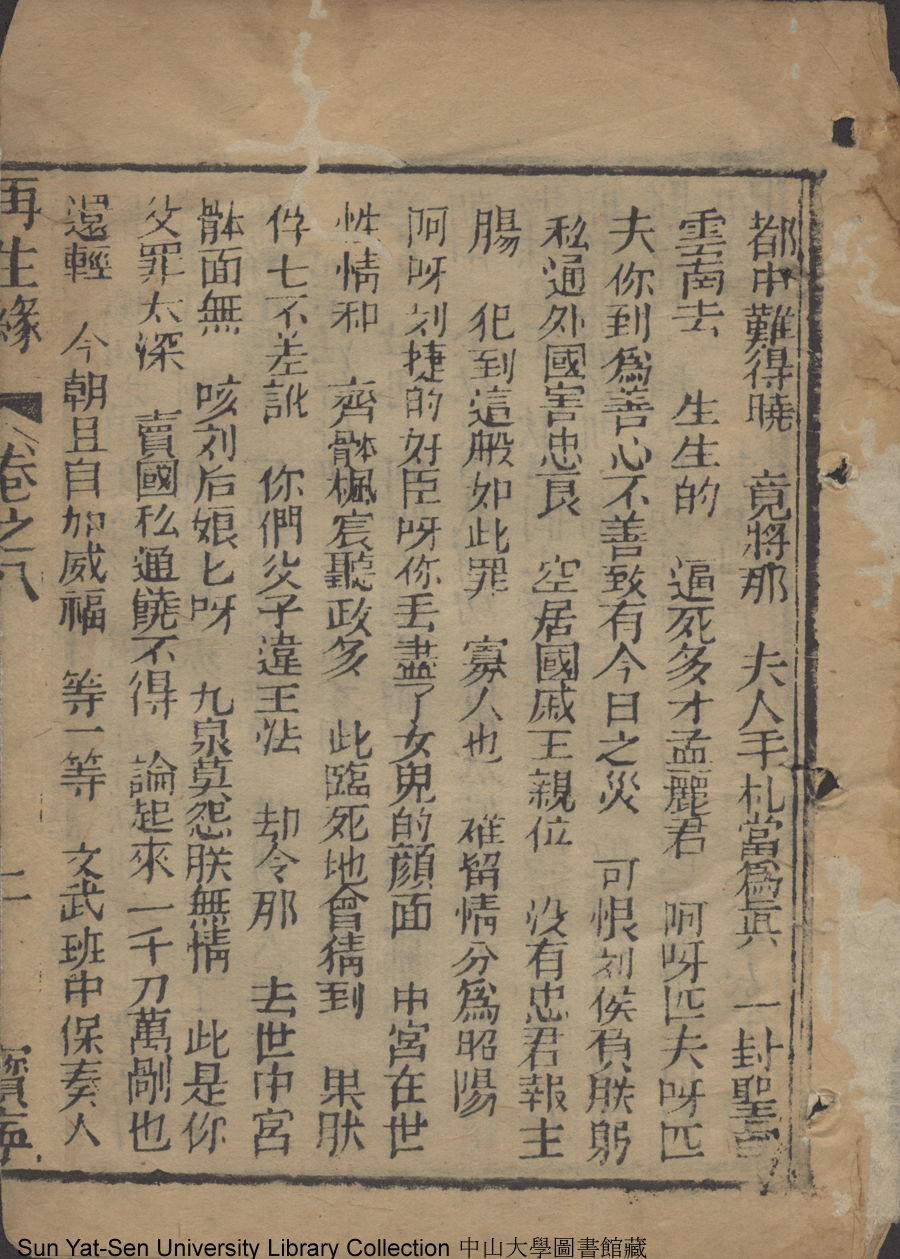 都中難得曉　竟將那　夫人手札當爲真　一封聖旨
雲南去　生生的　逼死多才孟麗君　阿呀匹夫呀匹
夫你到爲善心不善致有今日之災　可恨刘侯負朕躬
私通外國害忠良　空居國戚王親位　没有忠君報主
腸　犯到這般如此罪　寡人也　难留情分爲昭陽
阿呀刘捷的好臣呀你丟盡了女兒的顔面　中宮在世
性情和　齊躰楓宸聽政多　此臨死地會猜到　果肰
件七不差訛　你們父子違王法　却令那　去世中宮
躰面無　咳刘后娘匕呀　九泉莫怨朕無情　此是你
父罪太深　賣國私通饒不得　論起來一千刀萬剮也
還輕　今朝且自加威福　等一等　文武班中保奏人
再生緣　卷之八　二　寶
Sun Yat-Sen University Library Collection 中山大學圖書館藏